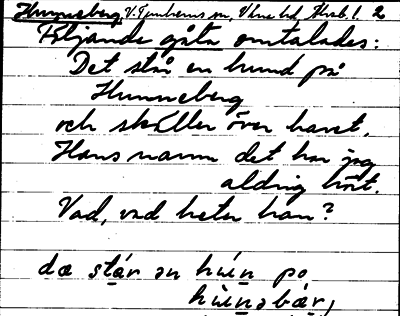 Hunneberg, V. Tunhems sn, Väne hd, 2
Följande gåta omtalades:
Det stå en hund på
Hunneberg
och skäller över havet.
Hans namn det har jag
aldrig hört.
Vad, vad heter han?
dæ stár ən hún po
hùnəbær,